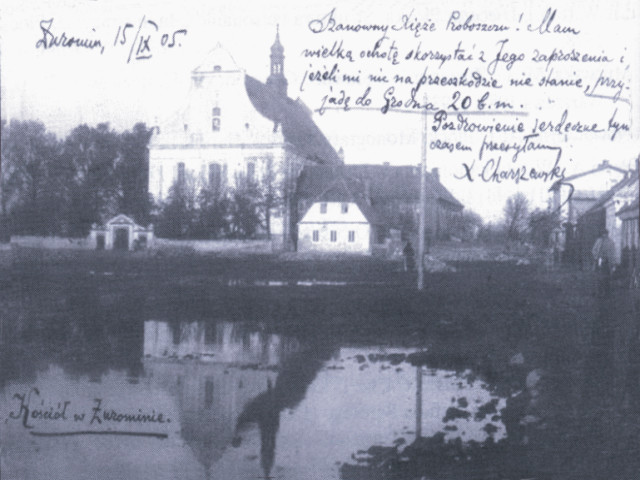 Żuromin, 15/IX 05.
Szanowny Księże Proboszczu! Mam
wielką ochotę skorzystać z Jego zaproszenia i,
jeżeli mi nic na przeszkodzie nie stanie, przy-
jadę do Grodna 20 b.m.
Pozdrowienie serdeczne tym
czasem przesyłam
X. Charszewski
Kościół w Żurominie.